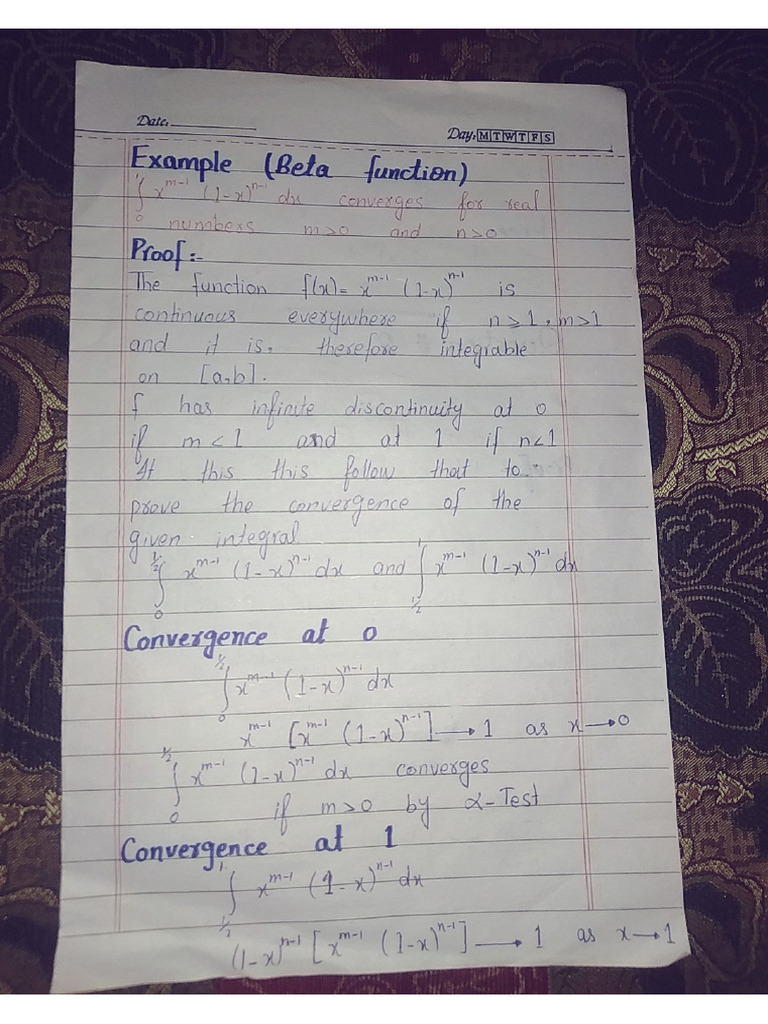 Date:
Day: M T W T F S
Example (Beta function)
∫₀¹ x^{m-1} (1-x)^{n-1} dx converges for real
numbers m>0 and n>0
Proof:-
The function f(x)= x^{m-1} (1-x)^{n-1} is
continuous everywhere if n≥1, m>1
and it is, therefore integrable
on [a,b].
f has infinite discontinuity at 0
if m<1 and at 1 if n<1
It this this follow that to
prove the convergence of the
given integral
∫₀^{1/2} x^{m-1} (1-x)^{n-1} dx and ∫_{1/2}^1 x^{m-1} (1-x)^{n-1} dx
Convergence at 0
∫₀^{1/2} x^{m-1} (1-x)^{n-1} dx
x^{m-1} [x^{m-1} (1-x)^{n-1}] → 1 as x → 0
∫₀^{1/2} x^{m-1} (1-x)^{n-1} dx converges
if m>0 by α-Test
Convergence at 1
∫_{1/2}^1 x^{m-1} (1-x)^{n-1} dx
(1-x)^{n-1} [x^{m-1} (1-x)^{n-1}] → 1 as x → 1